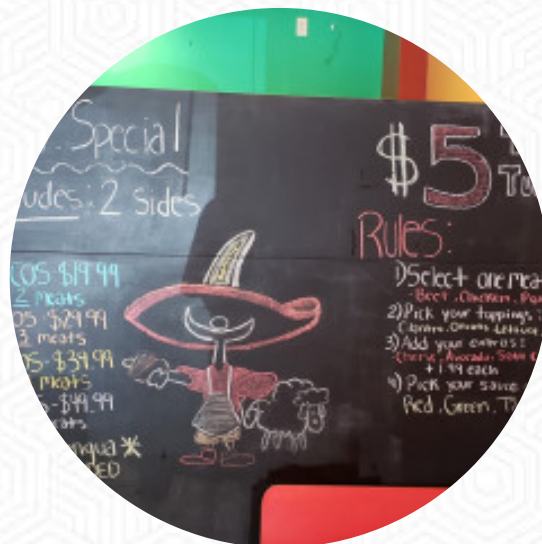 Special
udes: 2 Sides
COS $19.99
2 meats
OS $29.99
3 meats
OS-$39.99
meats
$49.99
ngua *
DED
$5 T
Tu
Rules:
1) Select one mea
Beef, Chicken, Po
2) Pick your toppings:
Cilantro, Onions, Lettuce,
3) Add your extras:
Cheese, Avocado, Sour
+1.99 each
4) Pick your salsa
Red, Green, T